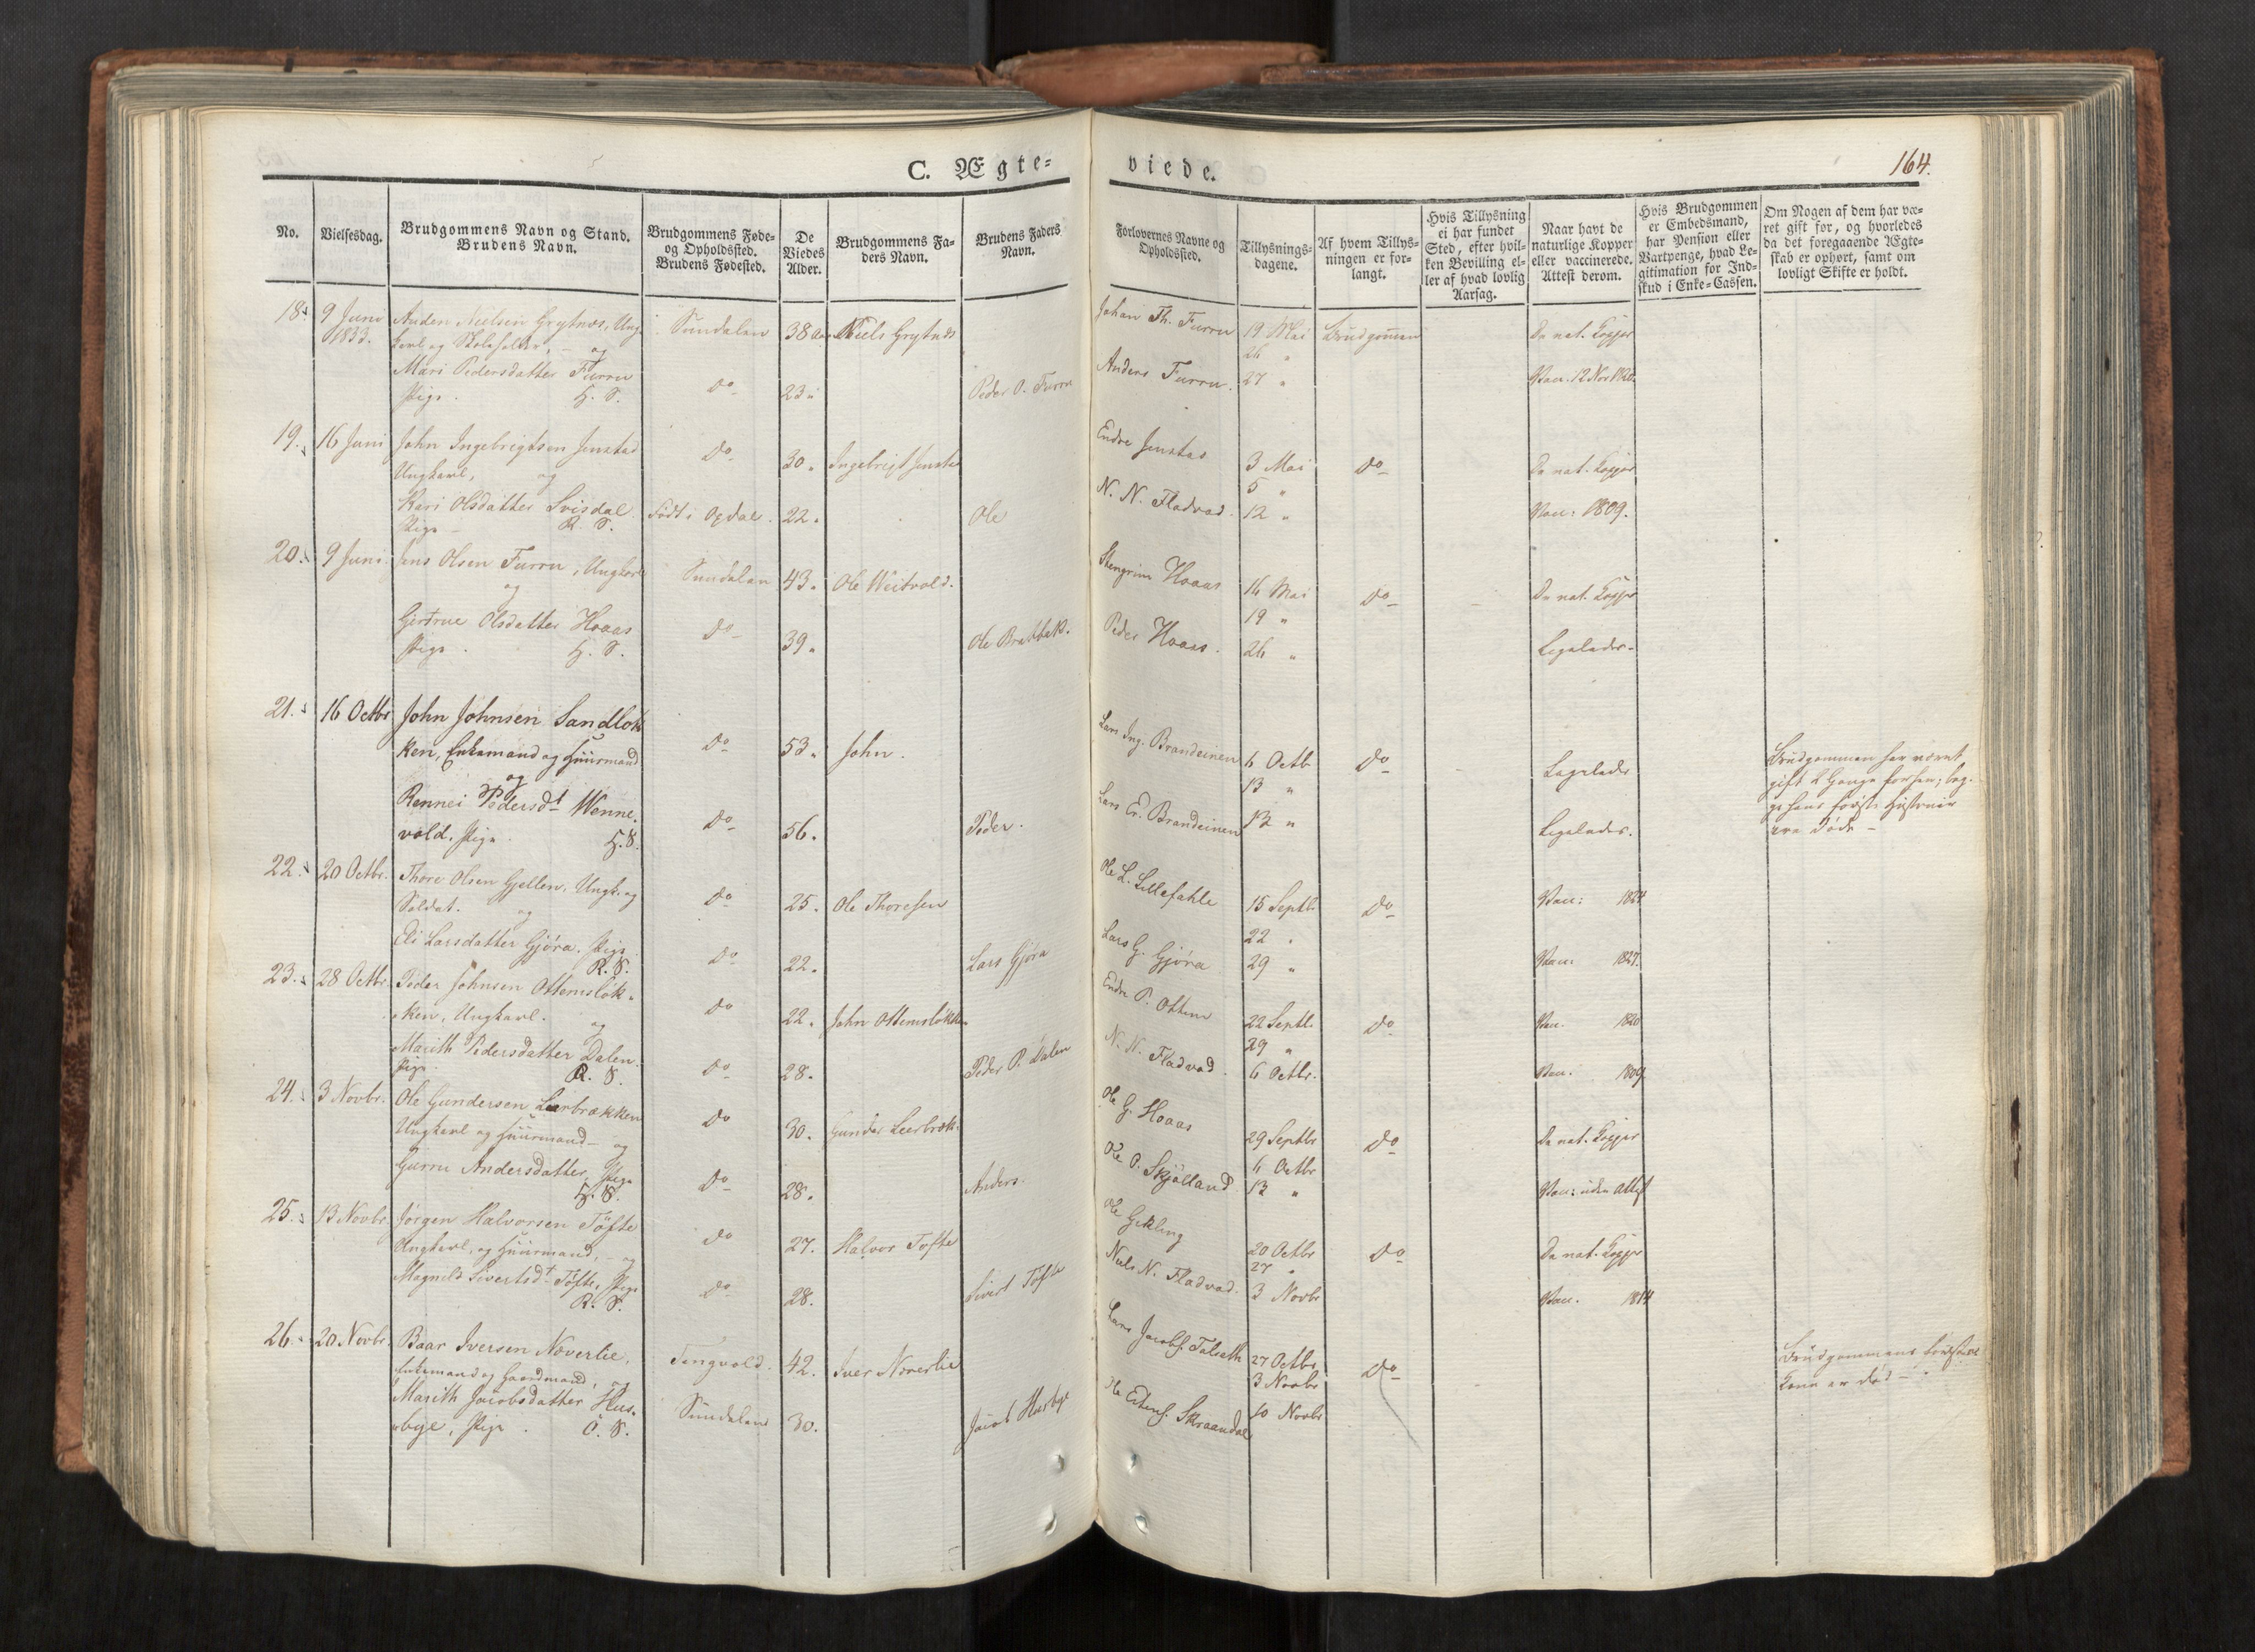 C. Ægte-
viede.
164.
No.
Vielsesdag.
Brudgommens Navn og Stand.
Brudens Navn.
Brudgommens Føde-
og Opholdssted.
Brudens Fødested.
De
Viedes
Alder.
Brudgommens Fa-
ders Navn.
Brudens Faders
Navn.
Forlovernes Navne og
Opholdssted.
Tillysnings-
dagene.
Af hvem Tillys-
ningen er for-
langt.
Hvis Tillysning
ei har fundet
Sted, efter hvil-
ken Bevilling el-
ler af hvad lovlig
Aarsag.
Naar havt de
naturlige Kopper
eller vaccinerede.
Attest derom.
Hvis Brudgommen
er Embedsmand,
har Pension eller
Vartpenge, hvad Le-
gitimation for Ind-
skud i Enke-Cassen.
Om Nogen af dem har væ-
ret gift før, og hvorledes
da det foregaaende Ægte-
skab er ophørt, samt om
lovligt Skifte er holdt.
18. 9 Juni Nielsen Grytnæs, Ung- Sundalen 38 Niels Grytnæs Johan Th. Furru 19 Mai Brudgommen De nat. Kopper
1833. karl og Skoleholder, og 26 "
Mari Pedersdatter Furru do 23 Peder O. Furru Anders Furru. 27 " Vac. 12 Nov 1820.
Pige. H. S.
19. 16 Juni John Ingebrigtsen Jenstad do 30. Ingebrigt Jenstad Endre Jenstad 3 Mai do De nat. Kopper
Ungkarl, og 5 "
Kari Olsdatter Svisdal Født i Opdal. 22. Ole N. N. Fladvad. 12 " Vac: 1809.
Pige R. S.
20. 9 Juni Jens Olsen Furru, Ungkarl Sundalen 43. Ole Stengrim Hoaas 16 Mai do De nat. Kopper
og 19 "
Gjertrue Olsdatter Hoaas do 39. Ole Peder Hoaas. 26 " Ligeledes.
Pige. H. S.
21. 16 Octbr John Johnsen Sandløk- do 53. John. Lars Ing. Brandeinen 6 Octb. do Ligeledes Brudgommen har været
ken, Enkemand og Huusmand 13 " gift 2 Gange forhen; beg-
og ge hans første Hustruer
Rennei Pedersdt. Wenne- do 56. Peder. Lars Er. Brandeinen 13 " Ligeledes. ere døde -
vold. Pige. H. S.
22. 20 Octbr. Thore Olsen Gjellen, Ungk. og do 25. Ole Thoresen Ole L. Lillefahle 15 Septb. do Vac: 1824
Soldat. og 22 "
Eli Larsdatter Gjøra. Pige do 22. Lars Gjøra Lars G. Gjøra 29 " Vac. 1827.
R. S.
23. 28 Octbr. Peder Johnsen Ottemsløk- do 22. John Ottemsløkken Endre P. Ottem 22 Septb. do Vac. 1820
ken, Ungkarl. og 29 "
Marith Pedersdatter Dalen. do 28. Peder P. Dalen N. N. Fladvad. 6 Octbr. Vac. 1809
Pige. R. S.
24. 3 Novbr. Ole Gundersen Leerbrækken do 30. Gunder Leerbræk. Ole G. Hoaas 29 Septbr do De nat. Kopper
Ungkarl og Huusmand - og 6 Octbr
Gurru Andersdatter, Pige do 28. Anders. Ole O. Skjølland. 13 " Vac: uden Attest
H. S.
25. 13 Novbr Jørgen Halvorsen Tøfte do 27. Halvor Tofte Ole Gikling 20 Octbr do De nat. Kopper
Ungkarl, og Huusmand, - og 27 "
Magnild Sivertsdt. Tøfte, Pige do 28. Sivert Tøfte Niels N. Fladvad. 3 Novbr Vac. 1814
R. S.
26. 20 Novbr. Baar Iversen Noverlie, Tingvold. 42. Iver Noverlie Lars Jacobs. Falseth 27 Octbr do Brudgommens forhen
Enkemand og Gaardmand, og 3 Novbr Kone er død -
Marith Jacobsdatter Hus- Sundalen 30. Jacob Husbye Ole Skraandal 10 Novbr
bye, Pige. O. S.